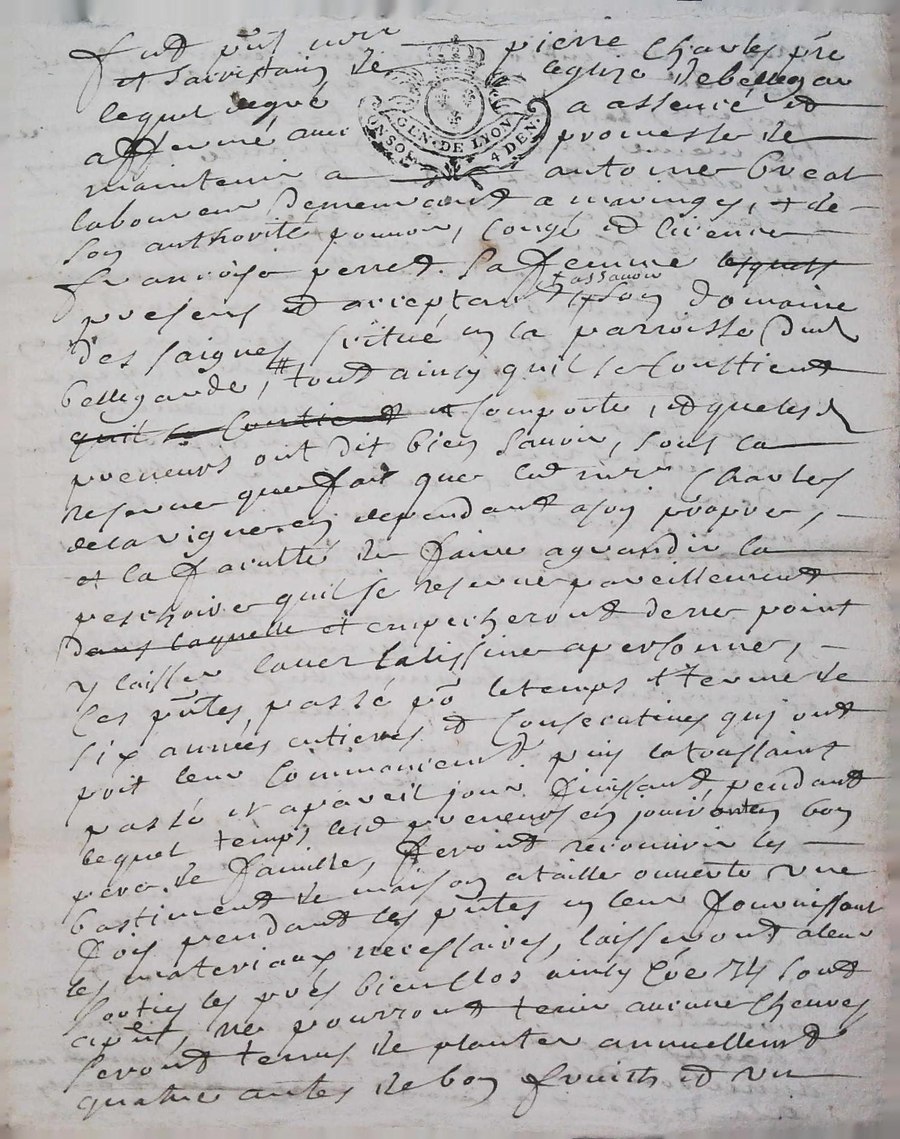 fut pnt mre pierre Charles pre
et sacristain de leglise de bellegar
lequel de gré a assencé et
GEN. DE LYON
4 DEN.
affermé avec promesse de
maintenir a antoine Breat
laboureur demeurant a maringes, et de
son authorité pouvoir, congé et licence
françoise perret sa femme lesquels
presens et acceptant assavoir son domaine
des saignes scitué en la parroisse dud
bellegarde, # tout ainsy quil se contient
quil se contient et comporte, et que lesd
preneurs ont dit bien scavoir, sous la
reserve que fait que led mre Charles
de la vigne en dependant a son propre,
et la faculté de faire agrandir la
peschoire quil se reserve pareillement
dans laquelle et empecheront de ne point
y laisser laver la lissive a personne,
Ces pntes, passé po le temps et terme de
six années entieres et consecutives qui ont
prit leur commancement puis la toussaint
passé et a pareil jour finissant, pendant
lequel temps lesd preneurs en jouiront en bon
pere de famille, feront recouvrir les
bastiment de maison a taille ouverte une
fois pendant les pntes en leur fournissant
les materiaux necessaires, laisseront a leur
sortie les prés bien clos ainsy sont
apnt, ne pourront tenir aucune Chevres
seront tenus de planter annuellement
quatre antes de bon fruith et un